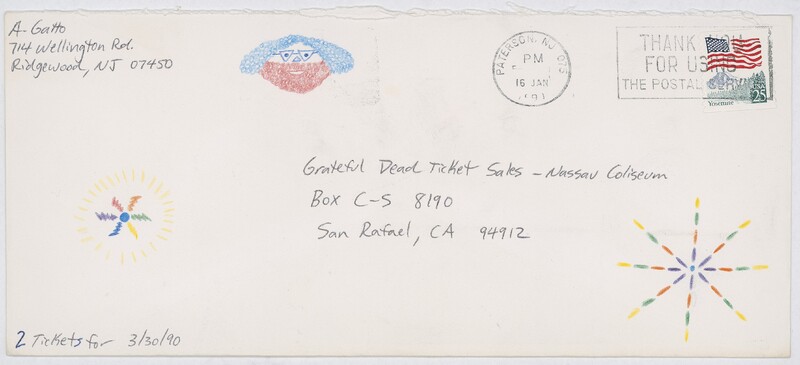 A. Gatto
714 Wellington Rd.
Ridgewood, NJ 07450
PATERSON, NJ 075
PM
16 JAN
THANK YOU
FOR USING
THE POSTAL SERVICE
USA
25
Yosemite
Grateful Dead Ticket Sales – Nassau Coliseum
Box C-S 8190
San Rafael, CA 94912
2 Tickets for 3/30/90